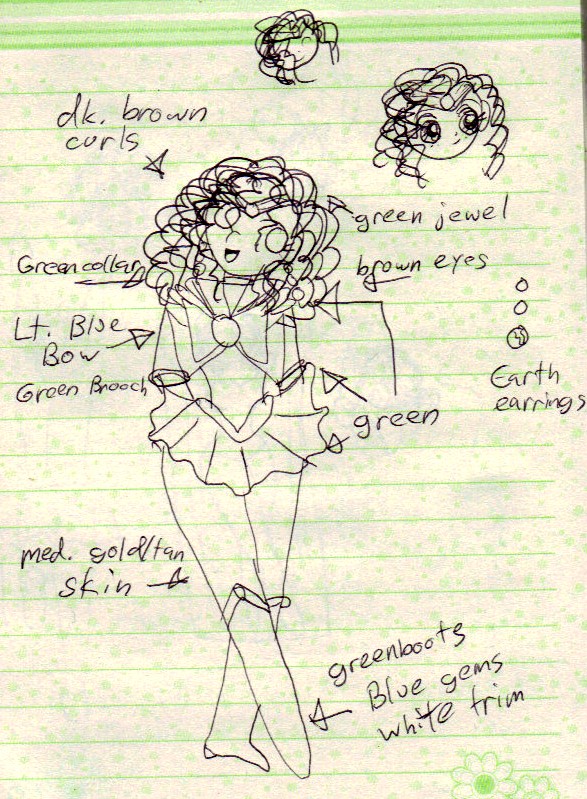 dk. brown
curls
green jewel
Green collar
brown eyes
Lt. Blue
Bow
Green Brooch
Earth
earrings
green
med. gold/tan
skin
green boots
Blue gems
white trim